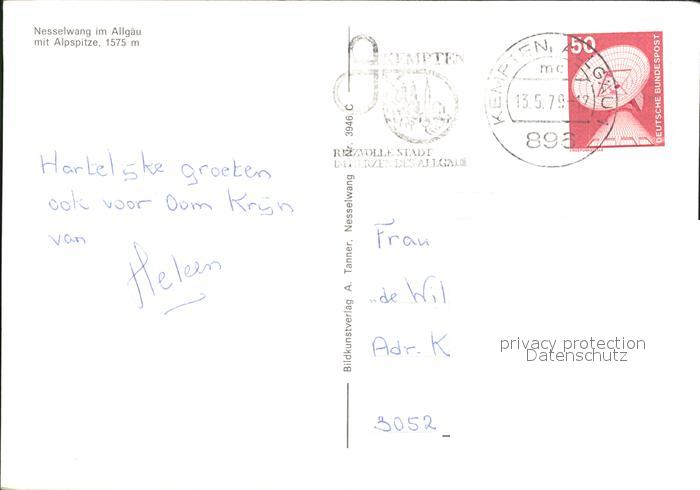 Nesselwang im Allgäu
mit Alpspitze, 1575 m
Hartelijke groeten
ook voor Oom Krijn
van
Heleen
Bildkunstverlag A. Tanner, Nesselwang Nr. 3946 C
KEMPTEN
REIZVOLLE STADT
IM HERZEN DES ALLGÄUS
KEMPTEN, ALLG
mc
13.5.79-12
896
50
DEUTSCHE BUNDESPOST
Frau
de Wil
Adr. K
3052
privacy protection
Datenschutz